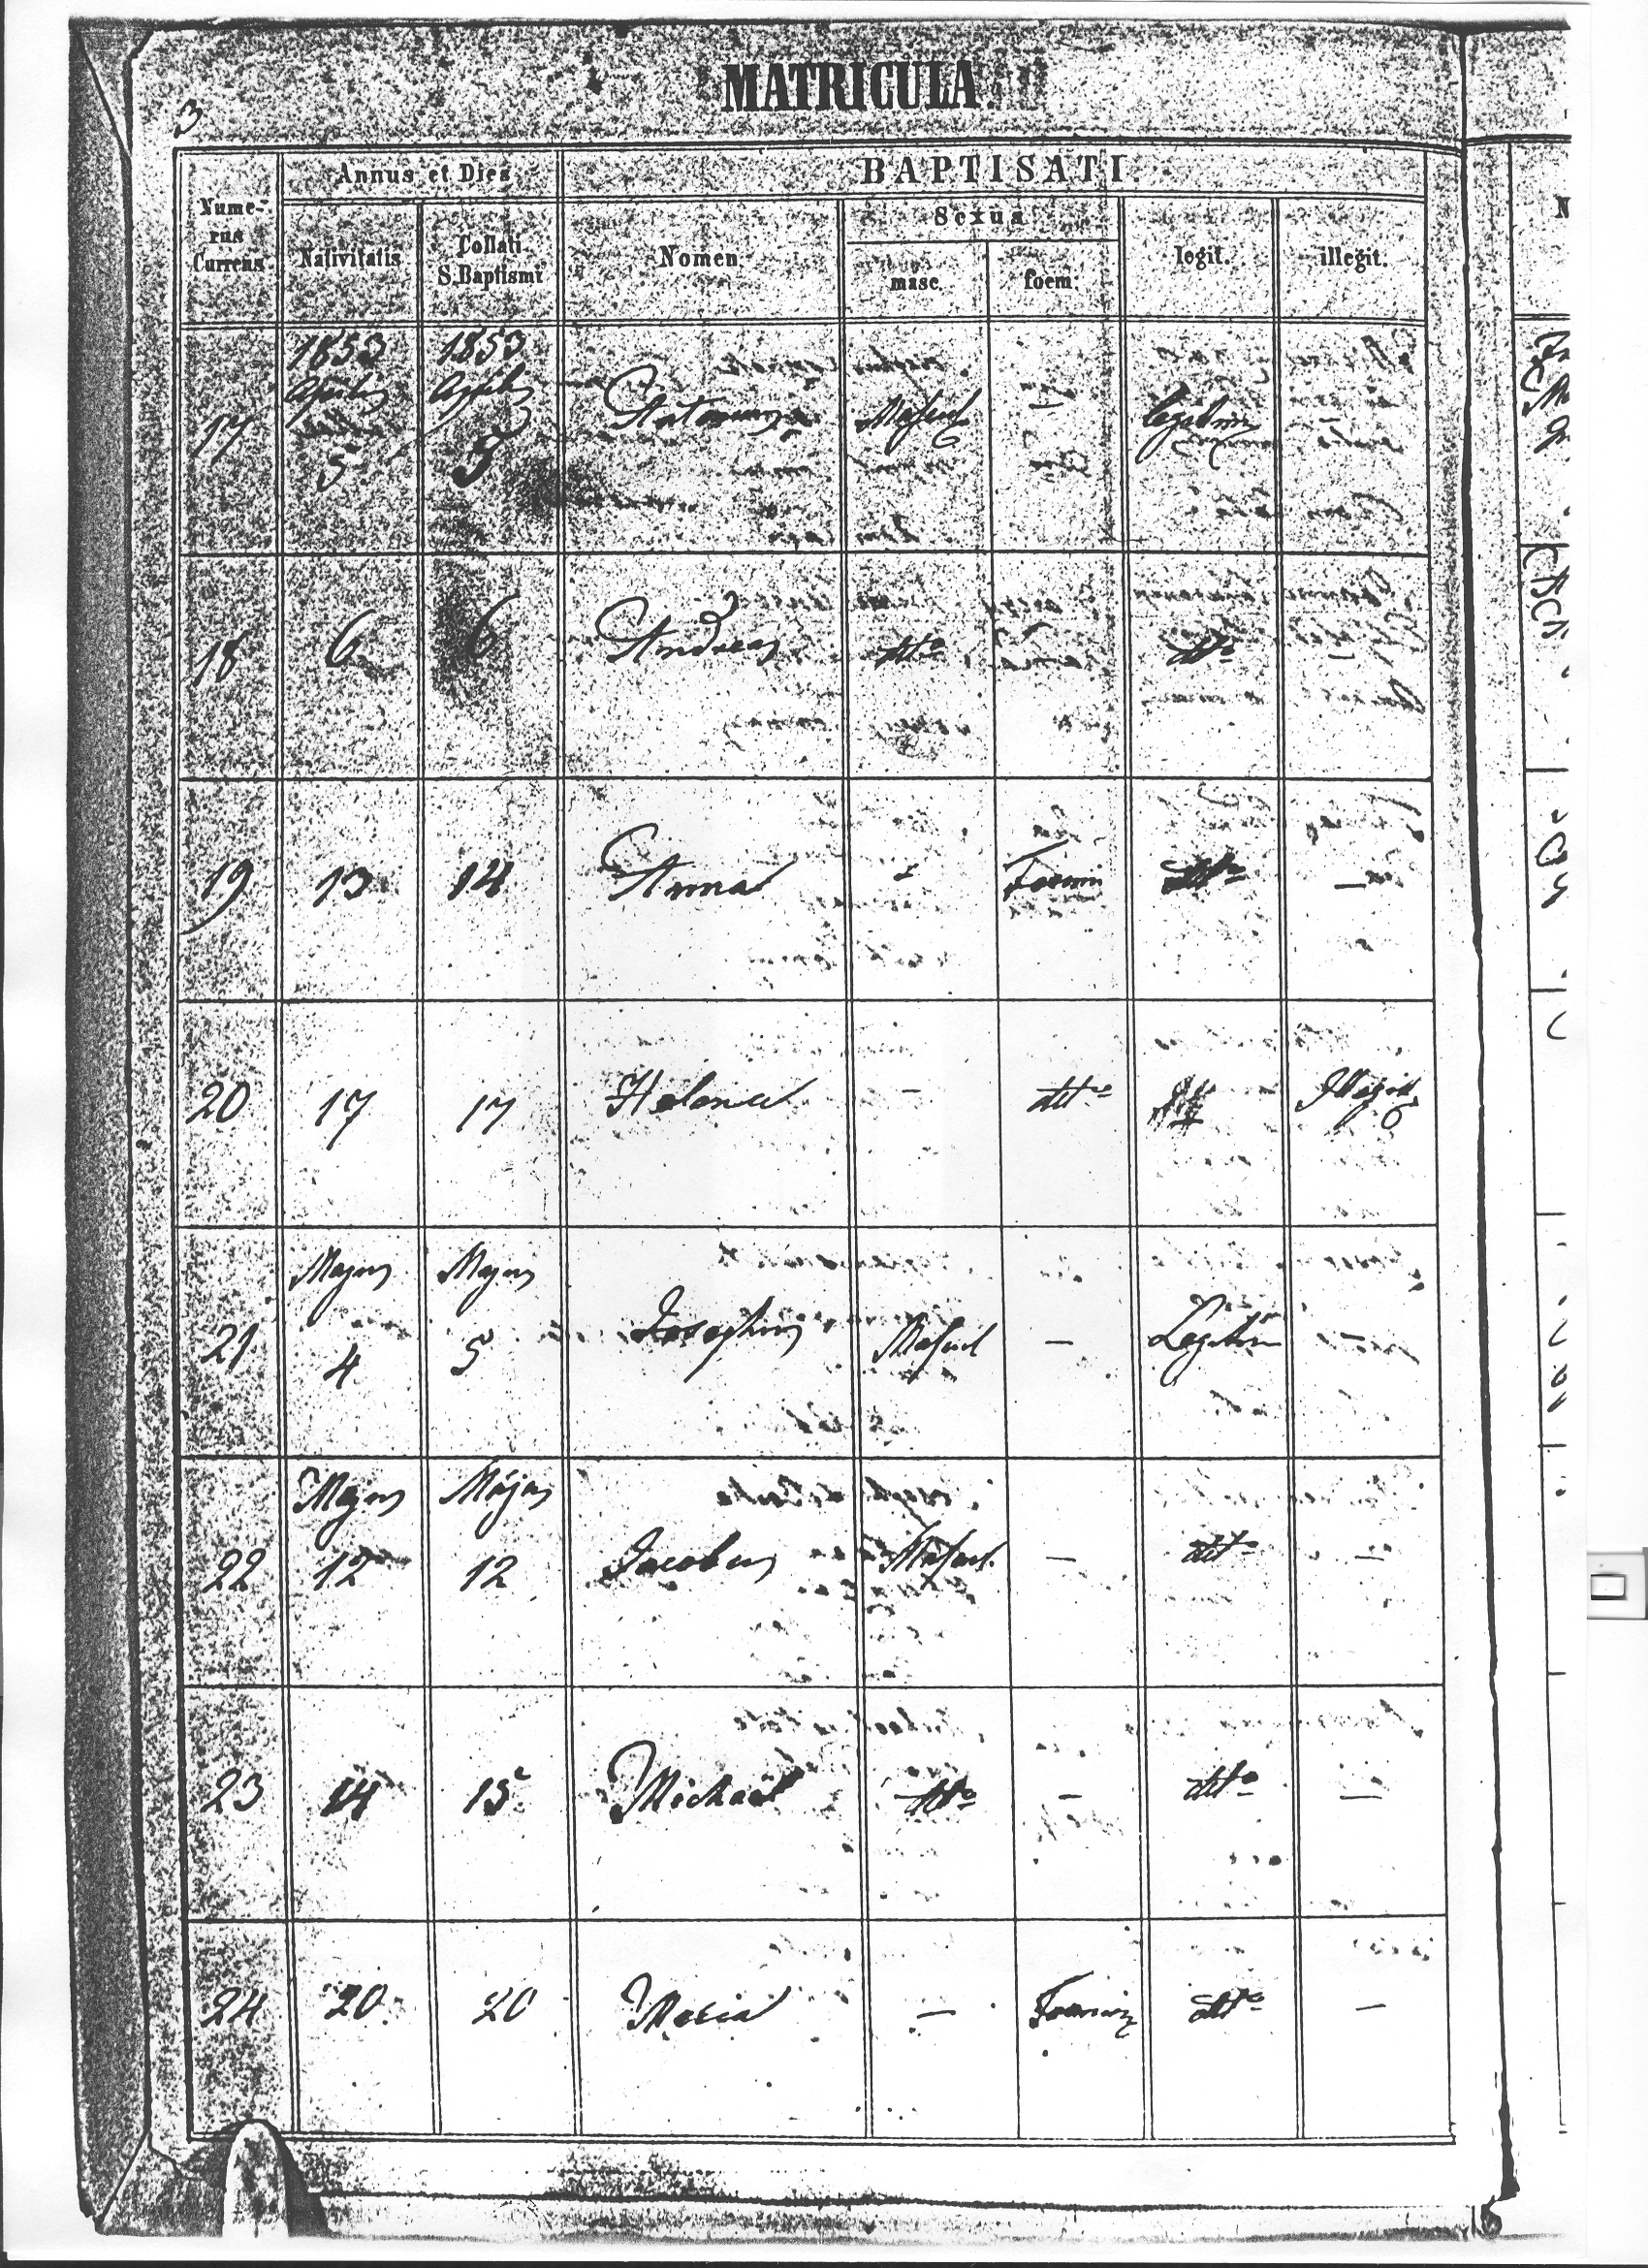 MATRICULA
3
Annus et Dies
BAPTISATI.
Nume-
rus
Currens
Nativitatis
Collati
S. Baptismi
Nomen
Sexus
masc.
foem.
legit.
illegit.
1853 1853
Aprilis Aprilis
17 5 5 Antonius Mascul — legitim —
18 6 6 Andreas dtto dtto —
19 13 14 Anna - Foemin dtto —
20 17 17 Helena - dtto Illegit
Majus Majus
21 4 5 Josephus Mascul — Legitim —
Majus Majus
22 12 12 Jacobus Mascul — dtto —
23 14 15 Michael dtto — dtto —
24 20 20 Maria — Foemin dtto —